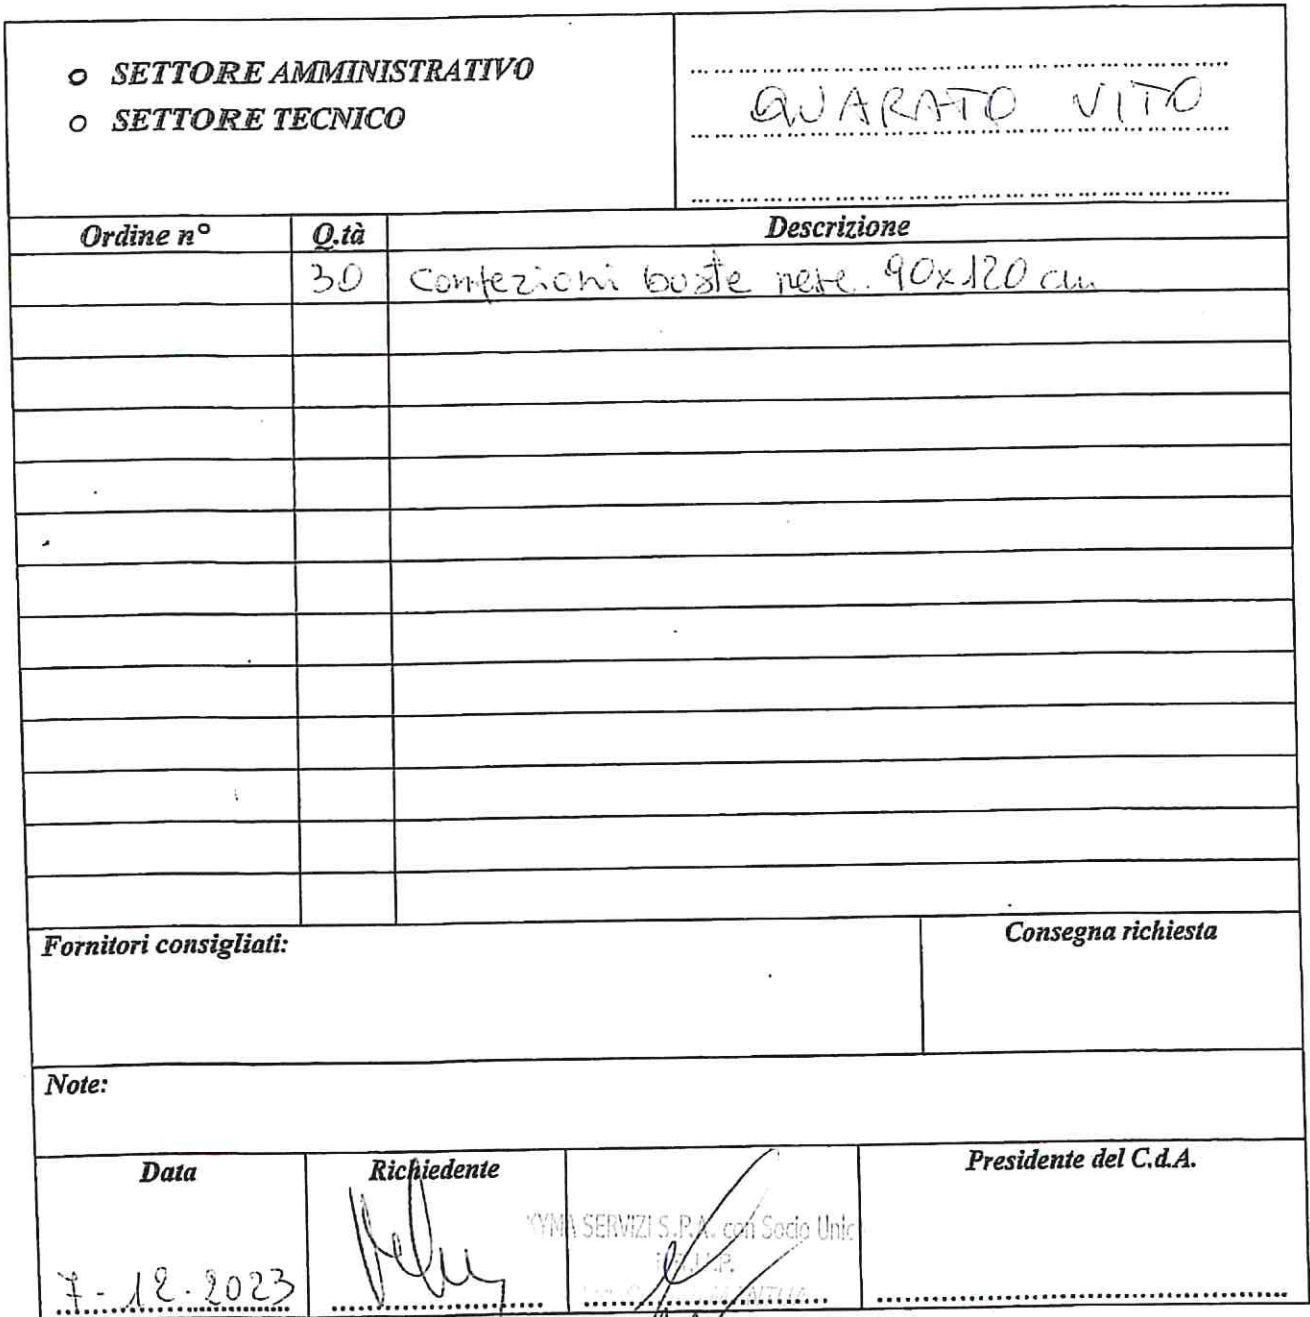 o SETTORE AMMINISTRATIVO
o SETTORE TECNICO
QUARATO VITO
Ordine n° Q.tà Descrizione
30 Confezioni buste nere 90x120 cm
Fornitori consigliati: Consegna richiesta
Note:
Data Richiedente Presidente del C.d.A.
KYMA SERVIZI S.P.A. con Socio Unic
7-12-2023